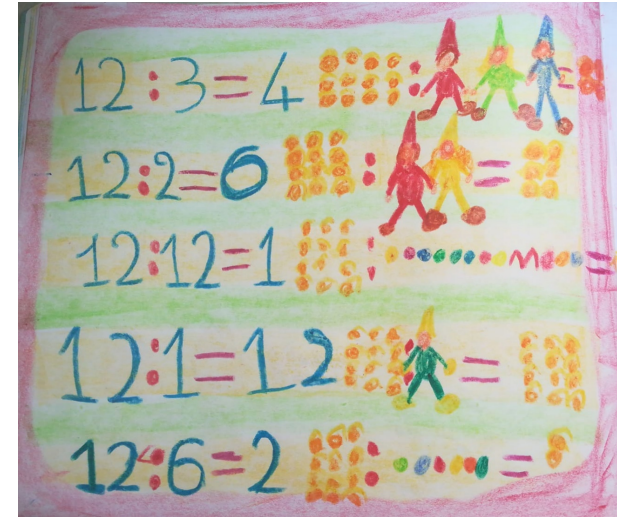 12:3=4 : =
12:2=6 : =
12:12=1 : =
12:1=12 : =
12:6=2 : =